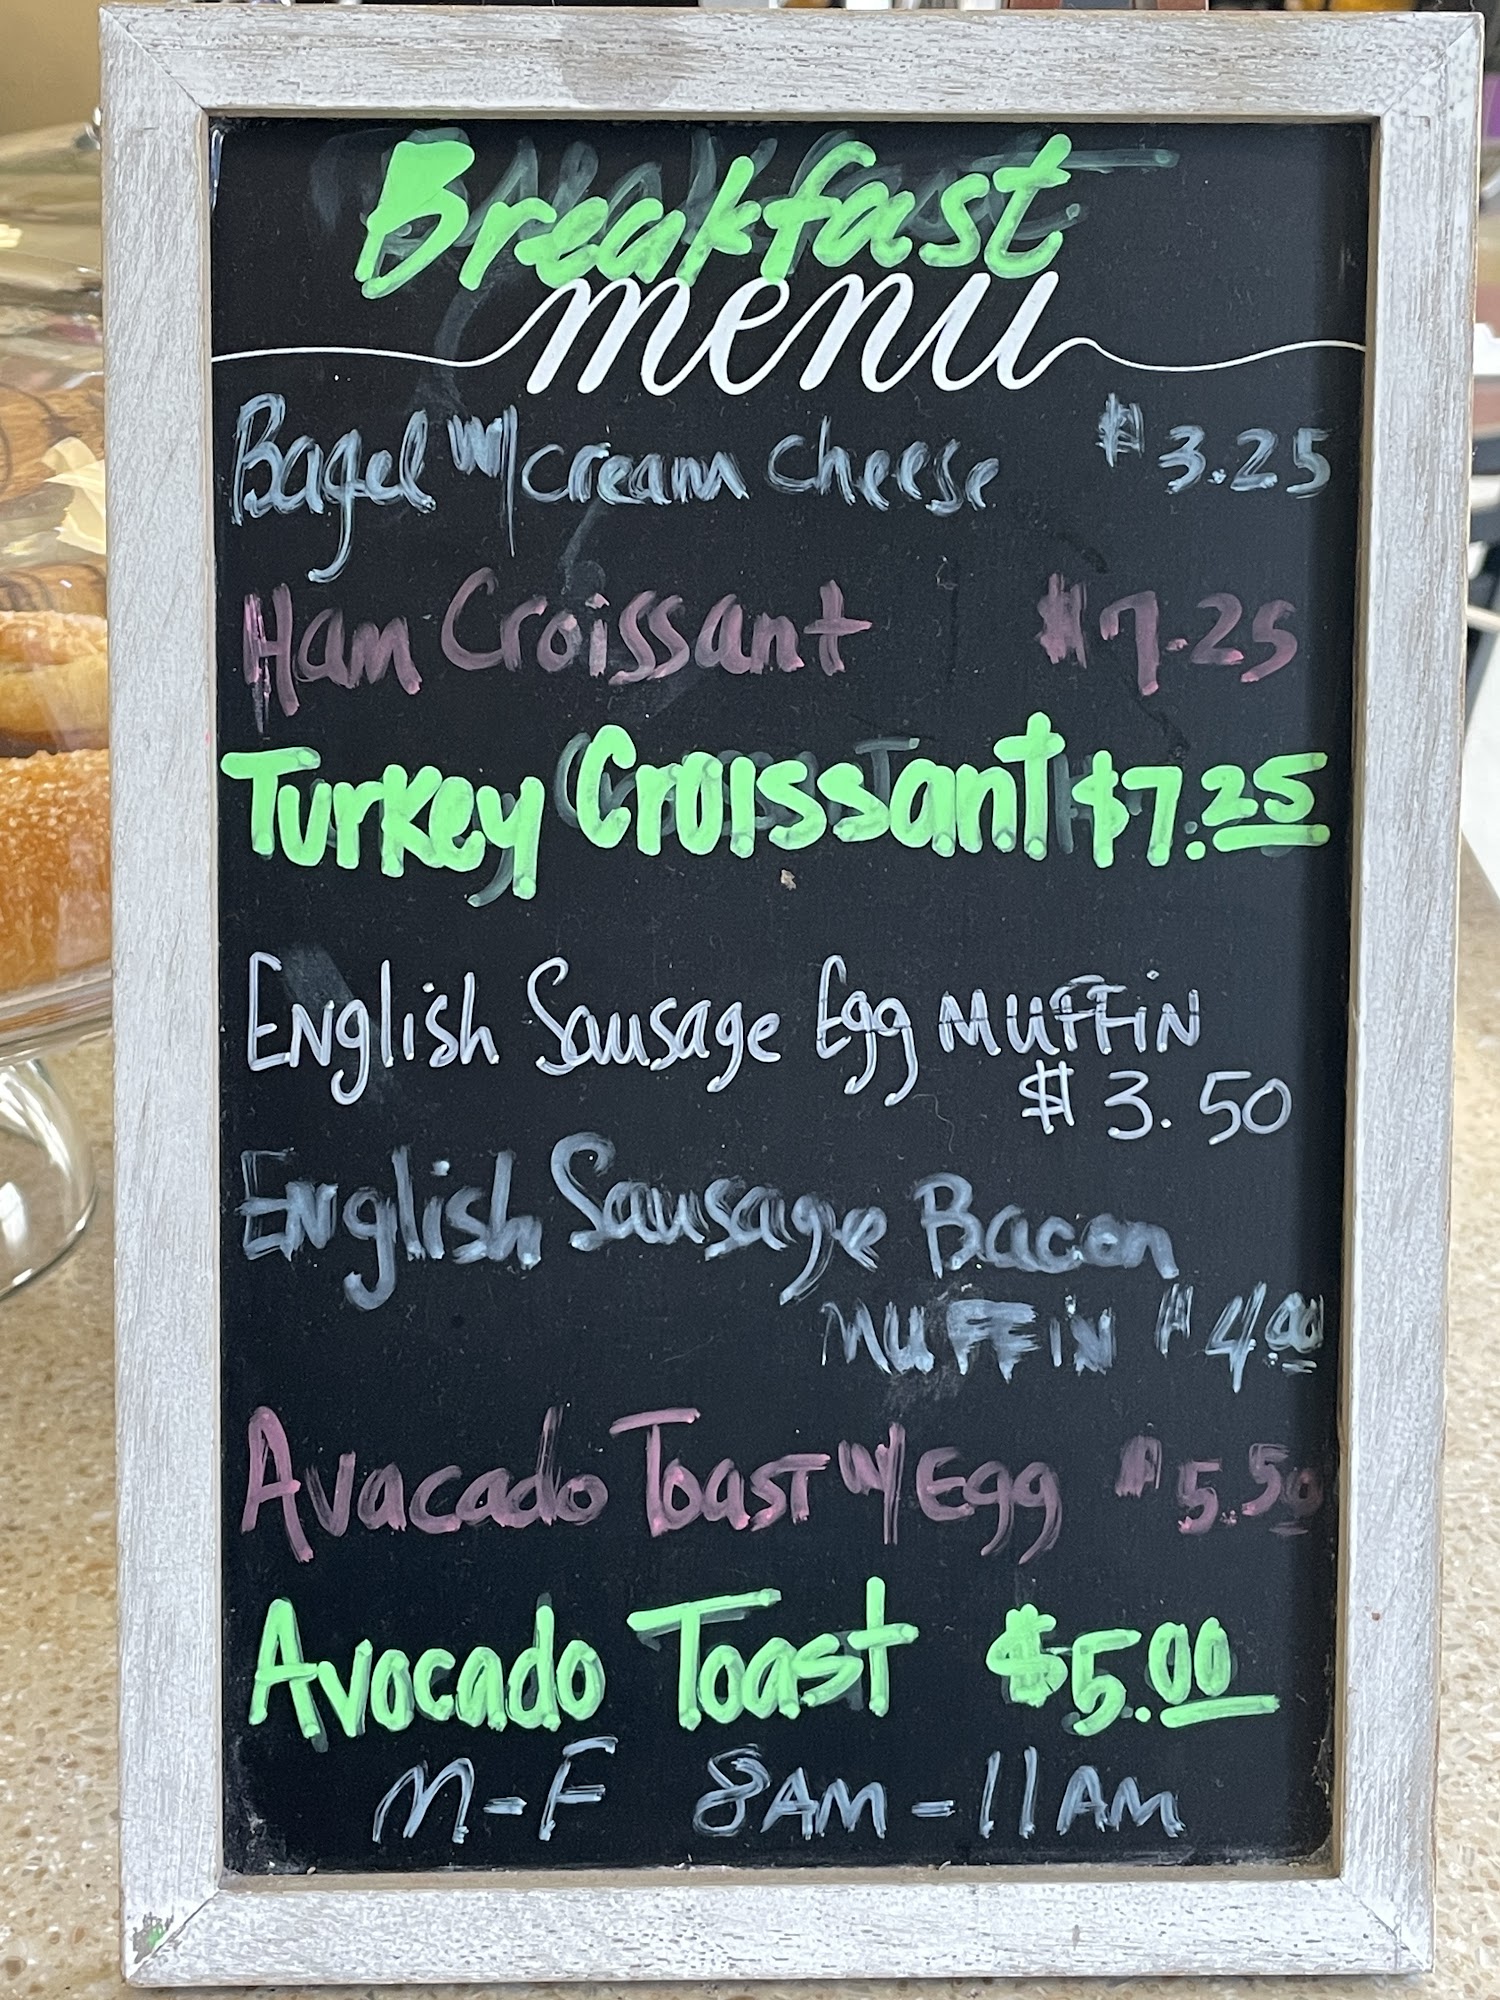 Breakfast
menu
Bagel w/ cream cheese $3.25
Ham Croissant $7.25
Turkey Croissant $7.25
English Sausage Egg MUFFiN
$3.50
English Sausage Bacon
MUFFiN $4.00
Avacado Toast w/ Egg $5.50
Avocado Toast $5.00
M-F 8AM-11AM